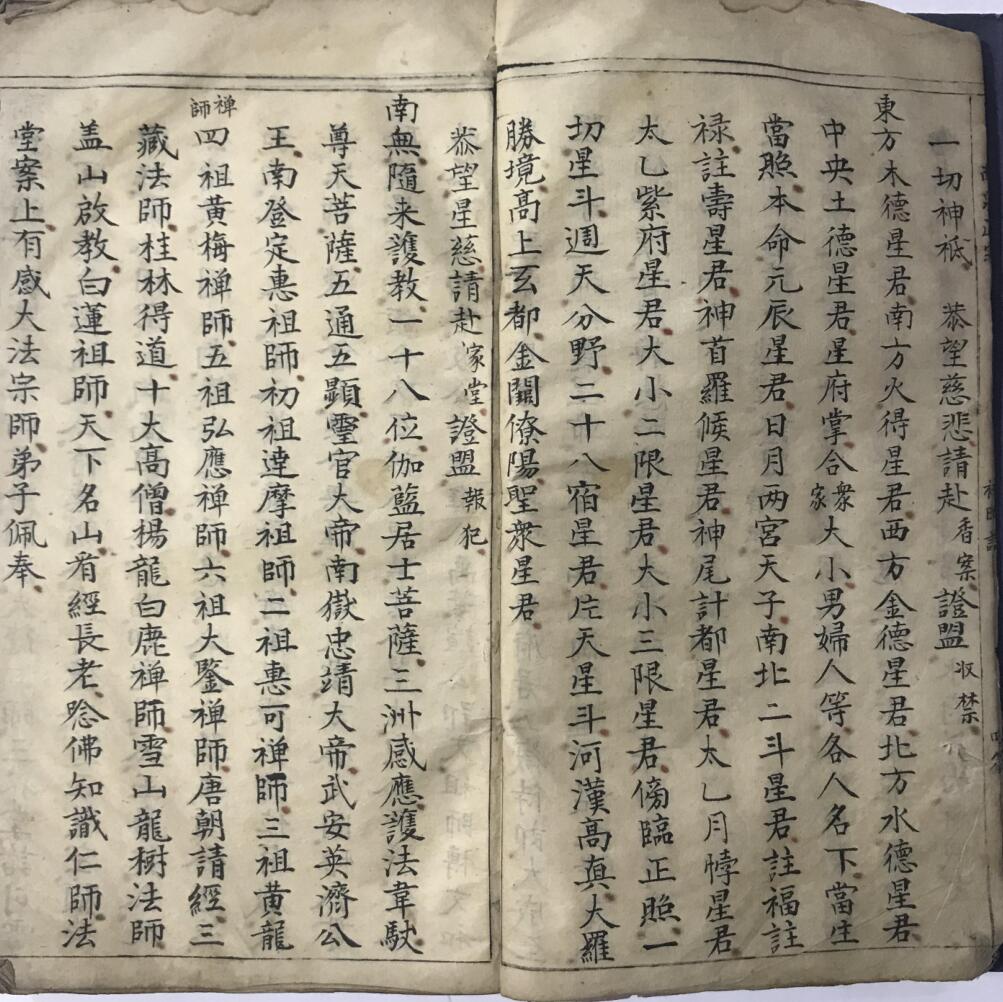 一切神祇 恭望慈悲請赴香案證盟収禁
東方木德星君南方火得星君西方金德星君北方水德星君
中央土德星君星府掌合衆家大小男婦人等各人名下當生
當照本命元辰星君日月两宫天子南北二斗星君註福註
禄註壽星君神首羅候星君神尾計都星君太乙月悖星君
太乙紫府星君大小二限星君大小三限星君傍臨正照一
切星斗週天分野二十八宿星君庄天星斗河漢高真大羅
勝境高上玄都金闕僚陽聖衆星君
恭望星慈請赴家堂證盟報犯
南無隨来護教一十八位伽藍居士菩薩三洲感應護法韋馱
尊天菩薩五通五顯霊官大帝南嶽忠靖大帝武安英濟公
王南登定惠祖師初祖達摩祖師二祖惠可禅師三祖黄龍
禅師四祖黄梅禅師五祖弘應禅師六祖大鑒禅師唐朝請經三
藏法師桂林得道十大高僧楊龍白鹿禅師雪山龍樹法師
盖山啟教白蓮祖師天下名山看經長老念佛知識仁師法
堂案上有感大法宗師弟子佩奉